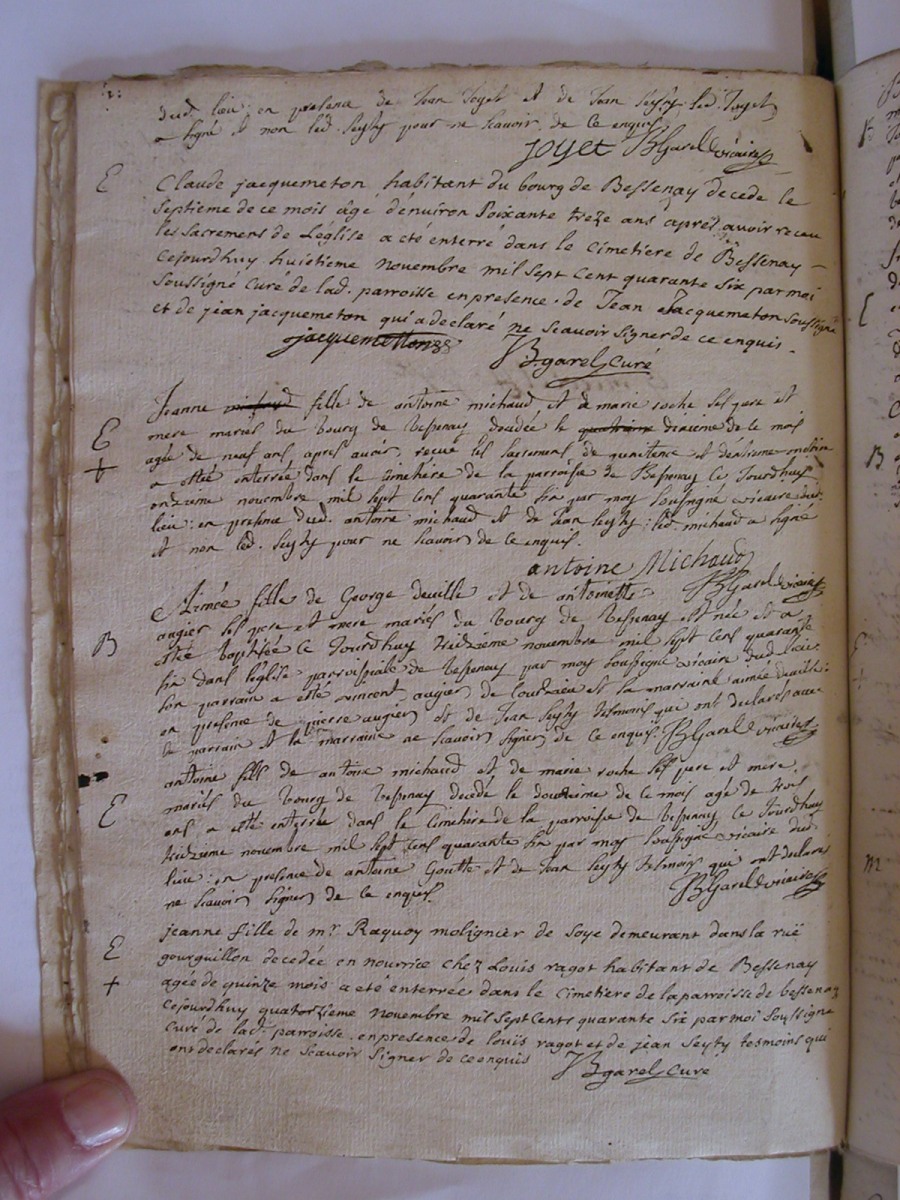 dud. lieu: en presence de Jean Joyet et de Jean Seyty led. Joyet
a signé et non led. Seyty pour ne scavoir de ce enquis.
joyet BGarel vicaire
E Claude jacquemeton habitant du bourg de Bessenay decede le
septieme de ce mois âgé d'environ soixante treze ans aprés avoir receu
les sacremens de L'église a eté enterré dans le cimetiere de Bessenay
cejourdhuy huitieme novembre mil sept cent quarante six par moi
soussigné curé de lad. parroisse en presence de Jean Jacquemeton soussigné
et de jean jacquemeton qui a declaré ne scavoir signer de ce enquis.
jacquemetton BgarelCuré
E Jeanne fille de antoine michaud et de marie roche ses pere et
mere mariés du bourg de Bessenay decedée le dixieme de ce mois
+ agée de neuf ans apres avoir receue les sacremens de penitence et
a estée enterrée dans le cimetiere de la parroisse de Bessenay ce Jourdhuy
onzieme novembre mil sept cens quarante six par moy soussigné vicaire dud.
lieu: en presence dud. antoine michaud et de Jean Seyty: led. michaud a signé
et non led. Seyty pour ne scavoir de ce enquis.
antoine Michaud
BGarel vicaire
Aimée fille de George deville et de antoinette
augier ses pere et mere mariés du bourg de Bessenay est née et a
B estée baptisée ce Jourdhuy treizième novembre mil sept cens quarante
six dans l'église parroissiale de Bessenay par moy soussigné vicaire dud. lieu.
son parrain a esté vincent augier de Courzieu et sa marraine aimée deville:
en presence de pierre augier et de Jean Seyty tesmoins qui ont declarés avec
le parrain et la marraine ne scavoir signer de ce enquis. BGarel vicaire
antoine fils de antoine michaud et de marie roche ses pere et mere.
mariés du bourg de Bessenay decedé le douzieme de ce mois agé de trois
E ans a esté enterrée dans le cimetière de la parroisse de Bessenay ce Jourdhuy
treizieme novembre mil sept cens quarante six par moy soussigné vicaire dud
lieu: en presence de antoine Goutte et de Jean Seyty tesmoins qui ont declarés
ne scavoir signer de ce enquis. BGarel vicaire
jeanne fille de mr. Raquoy molignier de soye demeurant dans la rüe
E gourguillon decedée en nourrice chez Louis ragot habitant de Bessenay
+ agée de quinze mois a eté enterrée dans le cimetiere de la parroisse de bessenay
cejourdhuy quatorzieme novembre mil sept cents quarante six par moi soussigné
curé de lad. parroisse. en presence de louis ragot et de jean Seyty tesmoins qui
ont declarés ne scavoir signer de ce enquis BgarelCuré